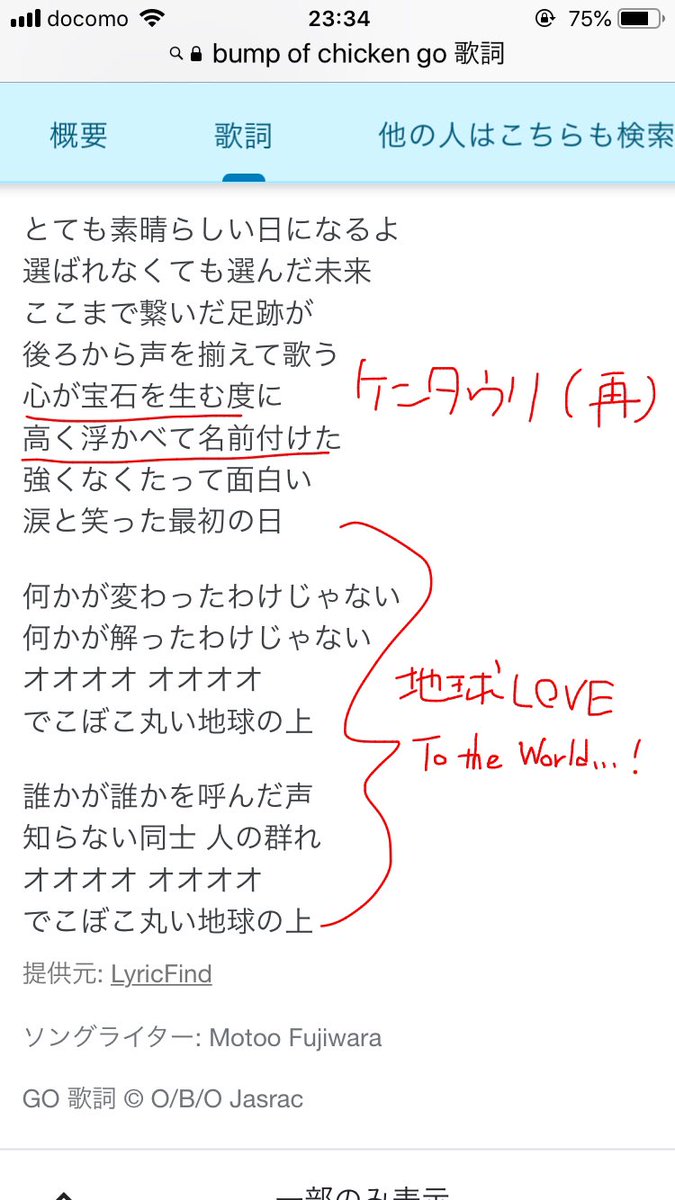 docomo 23:34 75%
bump of chicken go 歌詞
概要 歌詞 他の人はこちらも検索
とても素晴らしい日になるよ
選ばれなくても選んだ未来
ここまで繋いだ足跡が
後ろから声を揃えて歌う
心が宝石を生む度に
ケンタウリ(再)
高く浮かべて名前付けた
強くなくたって面白い
涙と笑った最初の日
何かが変わったわけじゃない
何かが解ったわけじゃない
オオオオ オオオオ
地球LOVE
でこぼこ丸い地球の上
To the World...!
誰かが誰かを呼んだ声
知らない同士 人の群れ
オオオオ オオオオ
でこぼこ丸い地球の上
提供元: LyricFind
ソングライター: Motoo Fujiwara
GO 歌詞 © O/B/O Jasrac
一部のみ表示